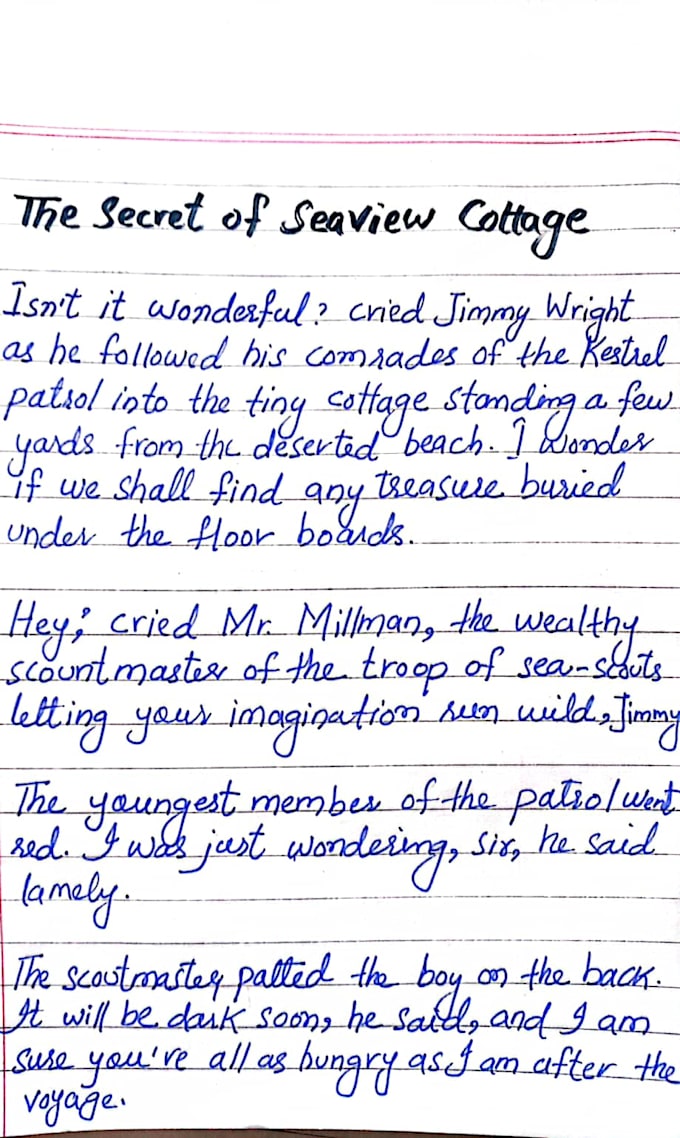 The Secret of Seaview Cottage
Isn't it wonderful? cried Jimmy Wright
as he followed his comrades of the Kestrel
patrol into the tiny cottage standing a few
yards from the deserted beach. I wonder
if we shall find any treasure buried
under the floor boards.
Hey; cried Mr. Millman, the wealthy
scountmaster of the troop of sea-scouts
letting your imagination run wild, Jimmy
The youngest member of the patrol went
red. I was just wondering, sir, he said
lamely.
The scoutmaster patted the boy on the back.
It will be dark soon, he said, and I am
sure you're all as hungry as I am after the
voyage.